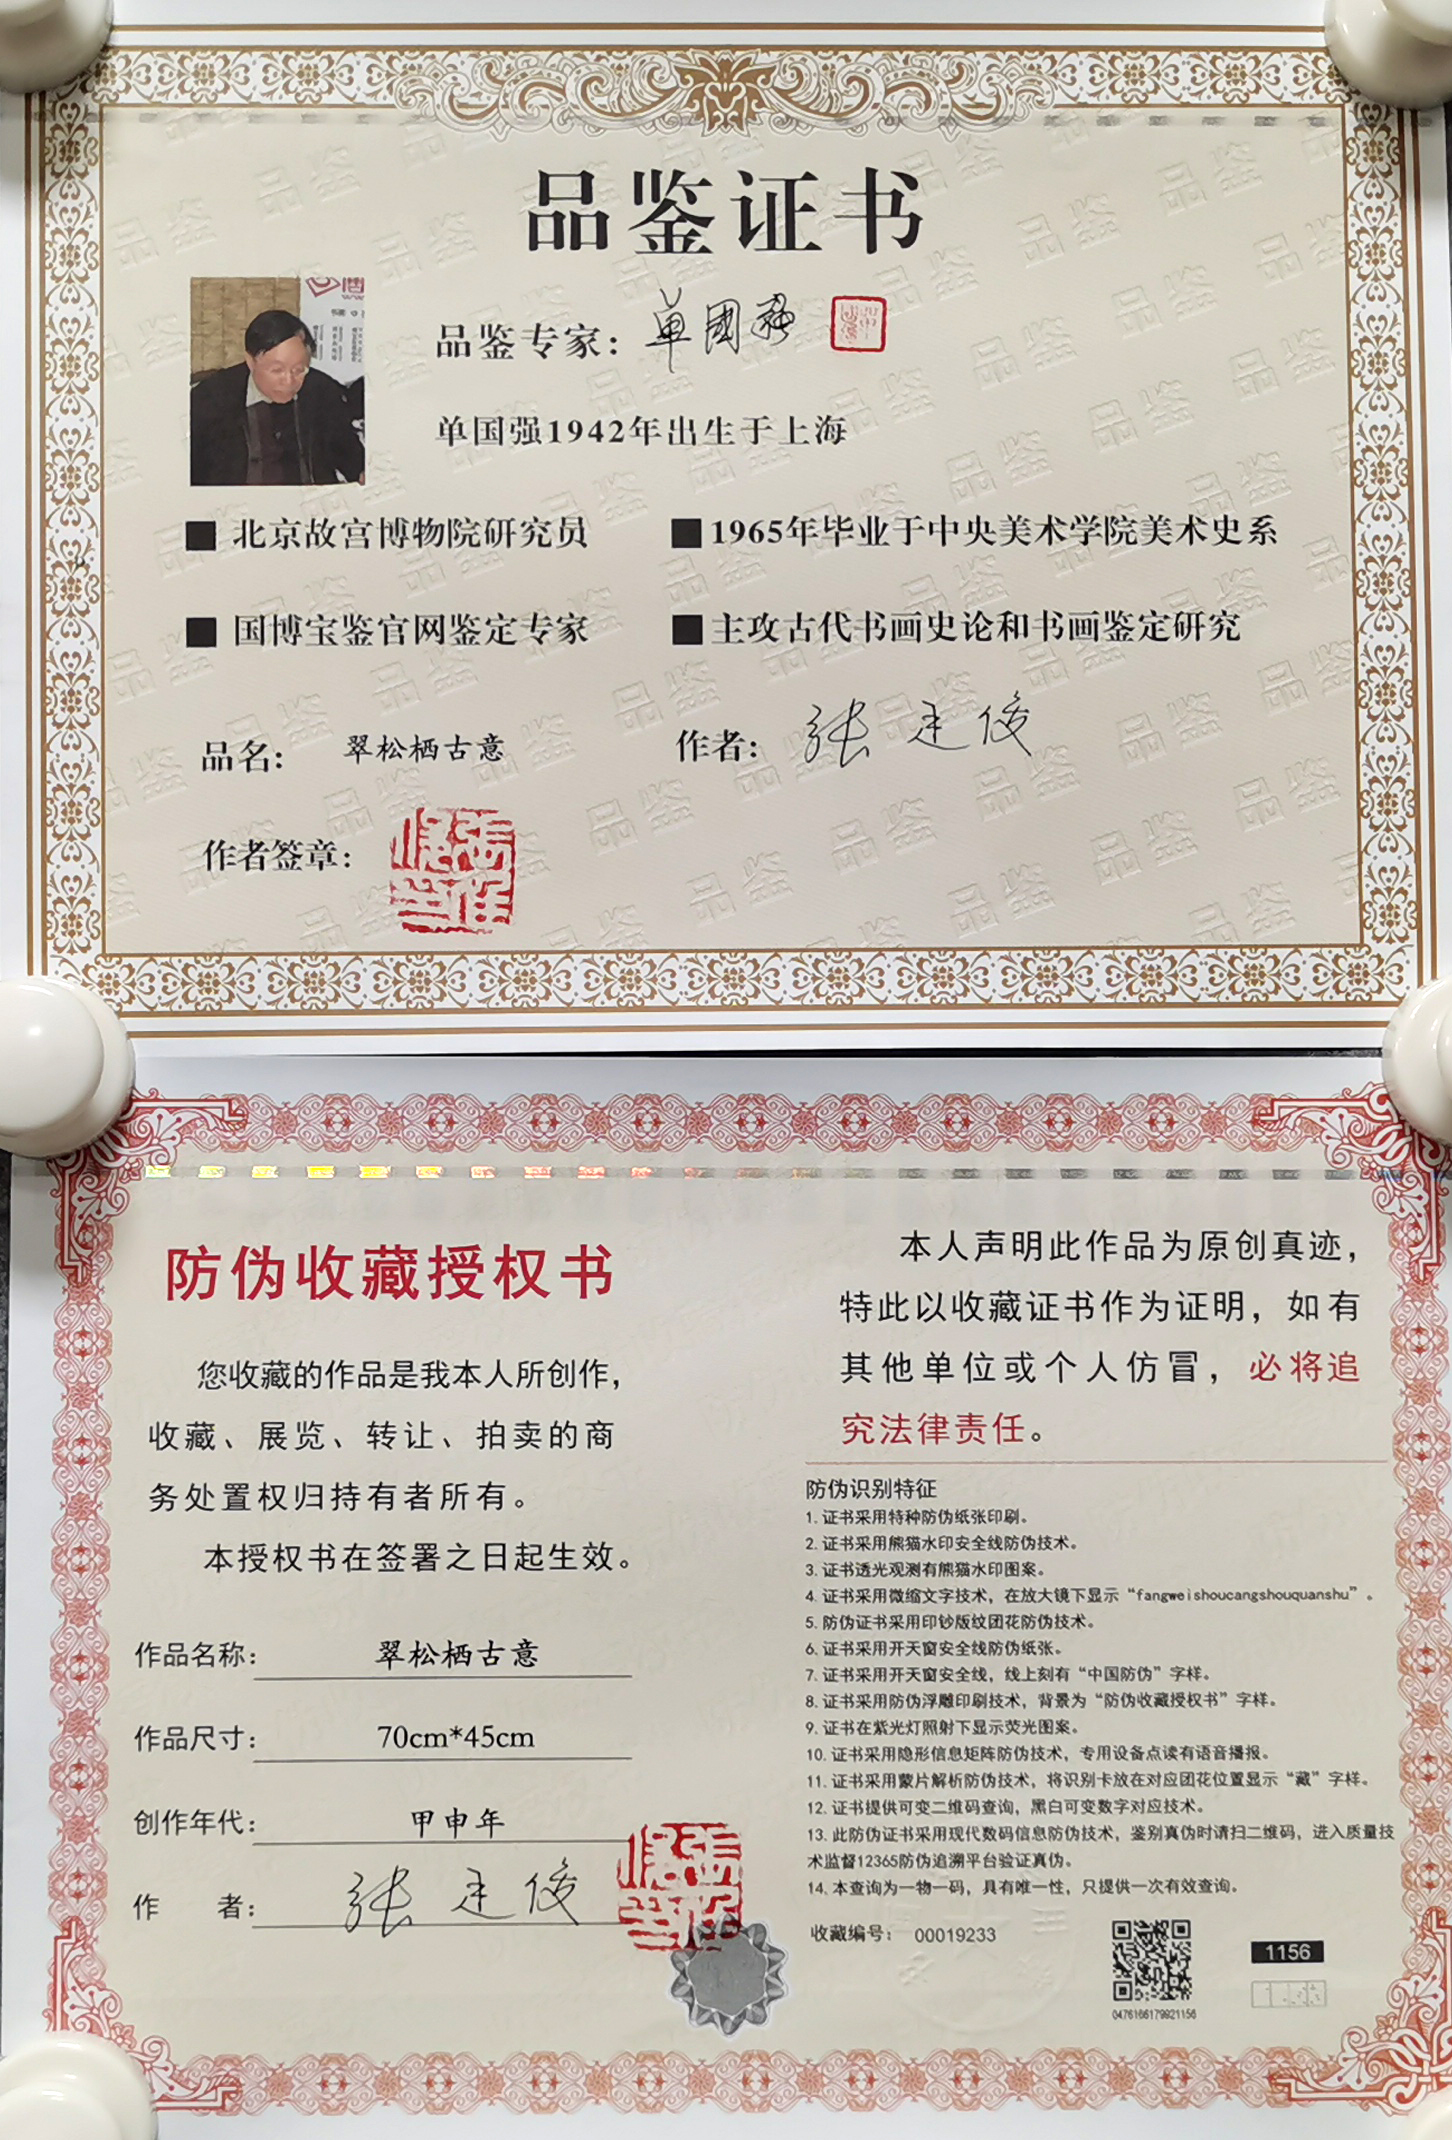 品鉴证书
品鉴专家：單國強
单国强1942年出生于上海
■ 北京故宫博物院研究员
■ 1965年毕业于中央美术学院美术史系
■ 国博宝鉴官网鉴定专家
■ 主攻古代书画史论和书画鉴定研究
品名： 翠松栖古意
作者：张建俊
作者签章：
防伪收藏授权书
您收藏的作品是我本人所创作，
收藏、展览、转让、拍卖的商
务处置权归持有者所有。
本授权书在签署之日起生效。
作品名称： 翠松栖古意
作品尺寸： 70cm*45cm
创作年代： 甲申年
作 者：张建俊
本人声明此作品为原创真迹，
特此以收藏证书作为证明，如有
其他单位或个人仿冒，必将追
究法律责任。
防伪识别特征
1. 证书采用特种防伪纸张印刷。
2. 证书采用熊猫水印安全线防伪技术。
3. 证书透光观测有熊猫水印图案。
4. 证书采用微缩文字技术，在放大镜下显示“fangweishoucangshouquanshu”。
5. 防伪证书采用印钞版纹团花防伪技术。
6. 证书采用开天窗安全线防伪纸张。
7. 证书采用开天窗安全线，线上刻有“中国防伪”字样。
8. 证书采用防伪浮雕印刷技术，背景为“防伪收藏授权书”字样。
9. 证书在紫光灯照射下显示荧光图案。
10. 证书采用隐形信息矩阵防伪技术，专用设备点读有语音播报。
11. 证书采用蒙片解析防伪技术，将识别卡放在对应团花位置显示“藏”字样。
12. 证书提供可变二维码查询，黑白可变数字对应技术。
13. 此防伪证书采用现代数码信息防伪技术，鉴别真伪时请扫二维码，进入质量技
术监督12365防伪追溯平台验证真伪。
14. 本查询为一物一码，具有唯一性，只提供一次有效查询。
收藏编号： 00019233
1156
0476166179921156